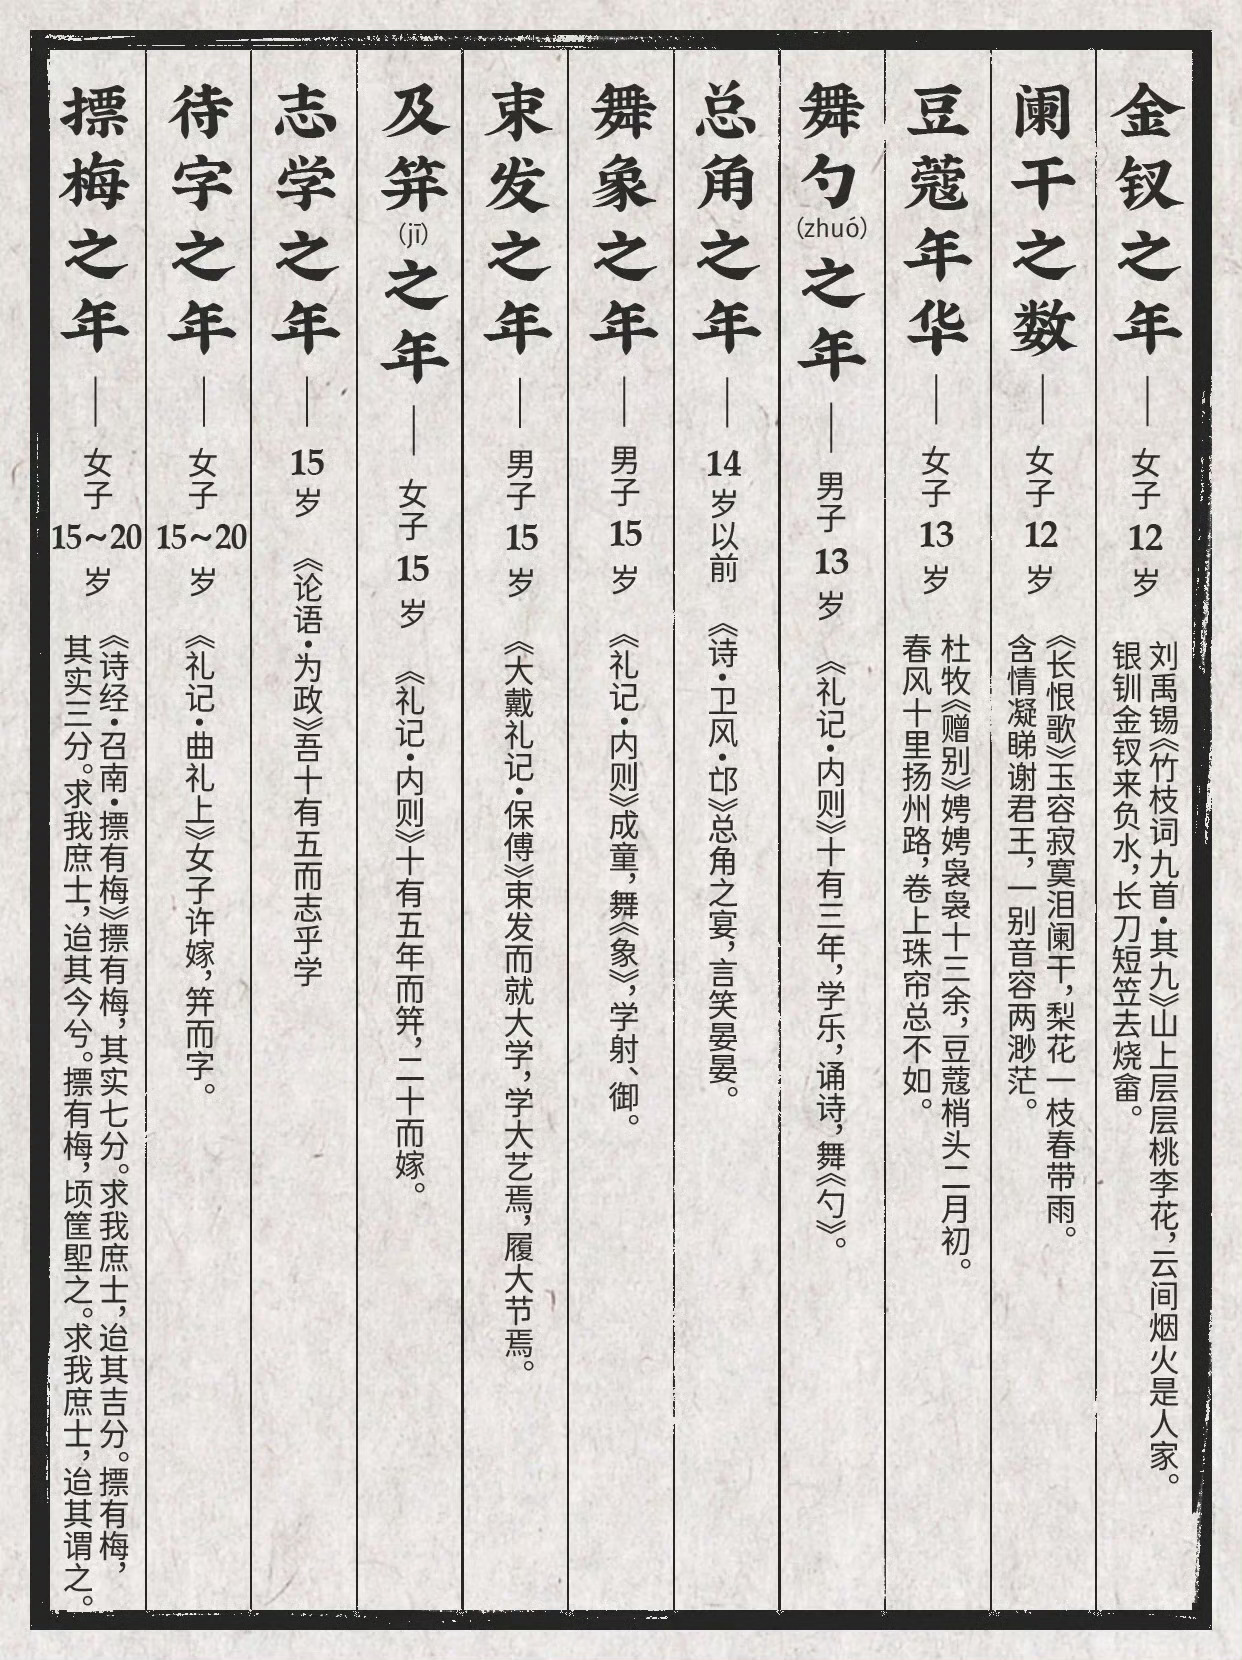 金钗之年——女子12岁
刘禹锡《竹枝词九首·其九》山上层层桃李花，云间烟火是人家。
银钏金钗来负水，长刀短笠去烧畲。
阑干之数——女子12岁
《长恨歌》玉容寂寞泪阑干，梨花一枝春带雨。
含情凝睇谢君王，一别音容两渺茫。
豆蔻年华——女子13岁
杜牧《赠别》娉娉袅袅十三余，豆蔻梢头二月初。
春风十里扬州路，卷上珠帘总不如。
舞勺（zhuó）之年——男子13岁
《礼记·内则》十有三年，学乐，诵诗，舞《勺》。
总角之年——14岁以前
《诗·卫风·邙》总角之宴，言笑晏晏。
舞象之年——男子15岁
《礼记·内则》成童，舞《象》，学射、御。
束发之年——男子15岁
《大戴礼记·保傅》束发而就大学，学大艺焉，履大节焉。
及笄（jī）之年——女子15岁
《礼记·内则》十有五年而笄，二十而嫁。
志学之年——15岁
《论语·为政》吾十有五而志乎学
待字之年——女子15~20岁
《礼记·曲礼上》女子许嫁，笄而字。
摽梅之年——女子15~20岁
《诗经·召南·摽有梅》摽有梅，其实七分。求我庶士，迨其吉分。摽有梅，
其实三分。求我庶士，迨其今兮。摽有梅，顷筐塈之。求我庶士，迨其谓之。